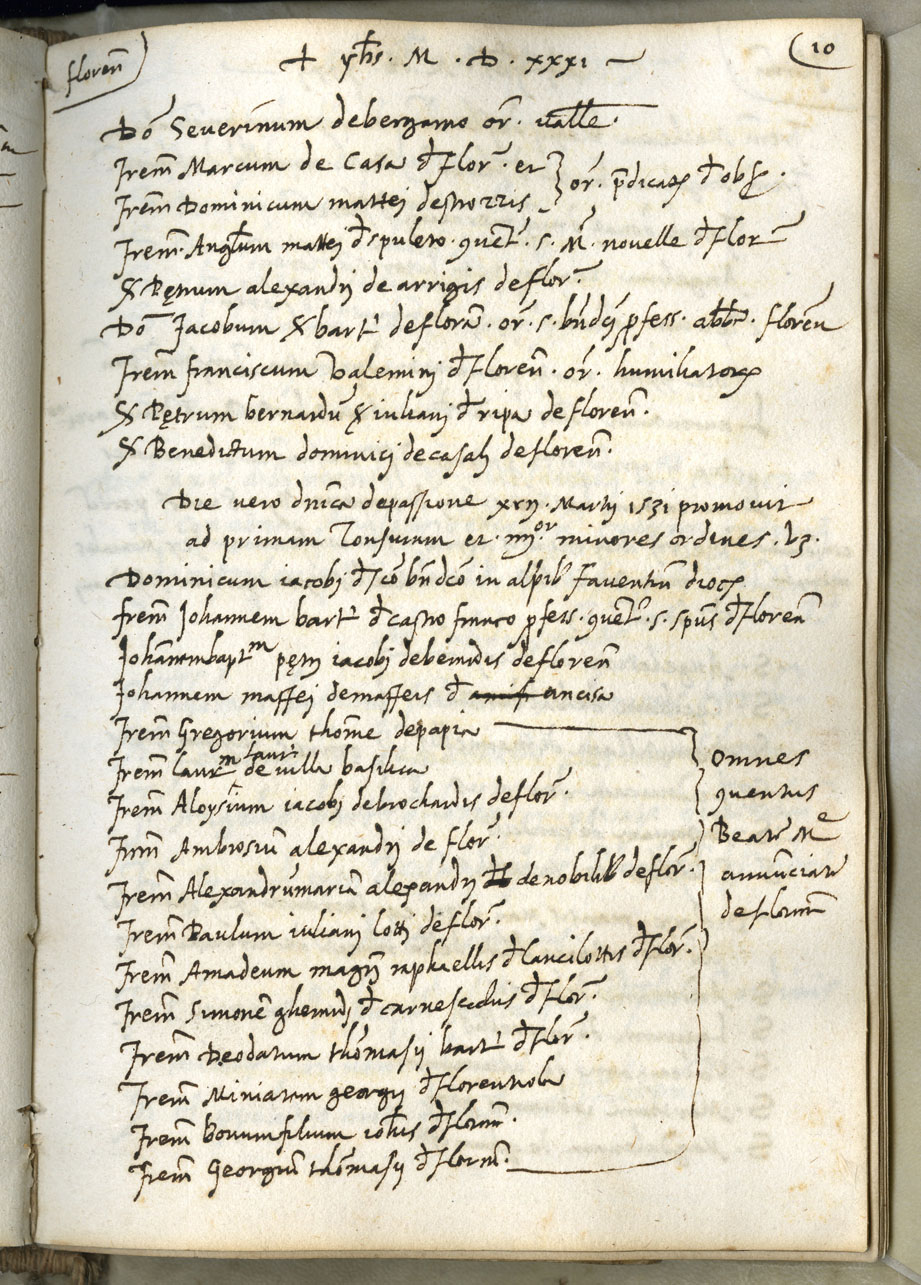 floren̄
+ yh̄s. M. D. xxxi
10
Do᷒ Severinum de bergamo or᷒. vall̄e.
frem̄ Marcum de Casa đ flor᷒. et
frem̄ Dominicum mattei de strozzis
or᷒. p̄dicatoꝝ đ obs.
frem̄. Angl̄um mattei đ spuleto. ꝯuent᷒. s. M᷒. novelle đ flor᷒
& Petrum alexandrij de arrigis de flor᷒.
Do᷒ Jacobum & bart᷒ de floren̄. or᷒. s. bn̄dc̄j ꝓfess. abb̄t. floren̄
frem̄ franciscum Valemini đ floren̄. or᷒. humiliatoꝝ
& Petrum bernardu᷒ & iuliani đ ripa de floren̄.
& Benedictum dominici de casalj de floren̄.
Die vero dn̄ica de passione Martij 1531 promovit
ad primam Tonsuram et. iiijor. minores ordines. vꝫ.
Dominicum iacobj đ sc̄o bn̄dc̄o in alpib᷒ faventin̄ dioc
frem̄ Johannem bart᷒ đ castro franco ꝓfess. ꝯuent᷒. s. sp̄us đ floren̄
Johānembaptm petrj iacobj de de floren̄
Johannem maffej de maffeis đ ancisa
frem̄ Gregorium thom̄e de papia
frem̄ laurm laur᷒ de villa basilica
frem̄ Aloysium iacobj de brochardis de flor᷒.
frem̄ Ambrosiū alexandrj de flor᷒.
frem̄ Alexandrumariā alexandrj de nobilib᷒ de flor᷒.
frem̄ Paulum iulianj lottj de flor᷒.
frem̄ Amadeum magrī raphaellis đ lancilottis đ flor᷒.
frem̄ Simonē gherardj đ carnesechis đ flor᷒.
frem̄ Deodatum thōmasij bart᷒ đ flor᷒.
frem̄ Miniatem georgij đ florentiola
frem̄ bonumfilium ioh̄is đ floren̄.
frem̄ Georgiū thōmasij đ floren̄.
Omnes
ꝯventus
Beate Me
annūciate
de floren̄